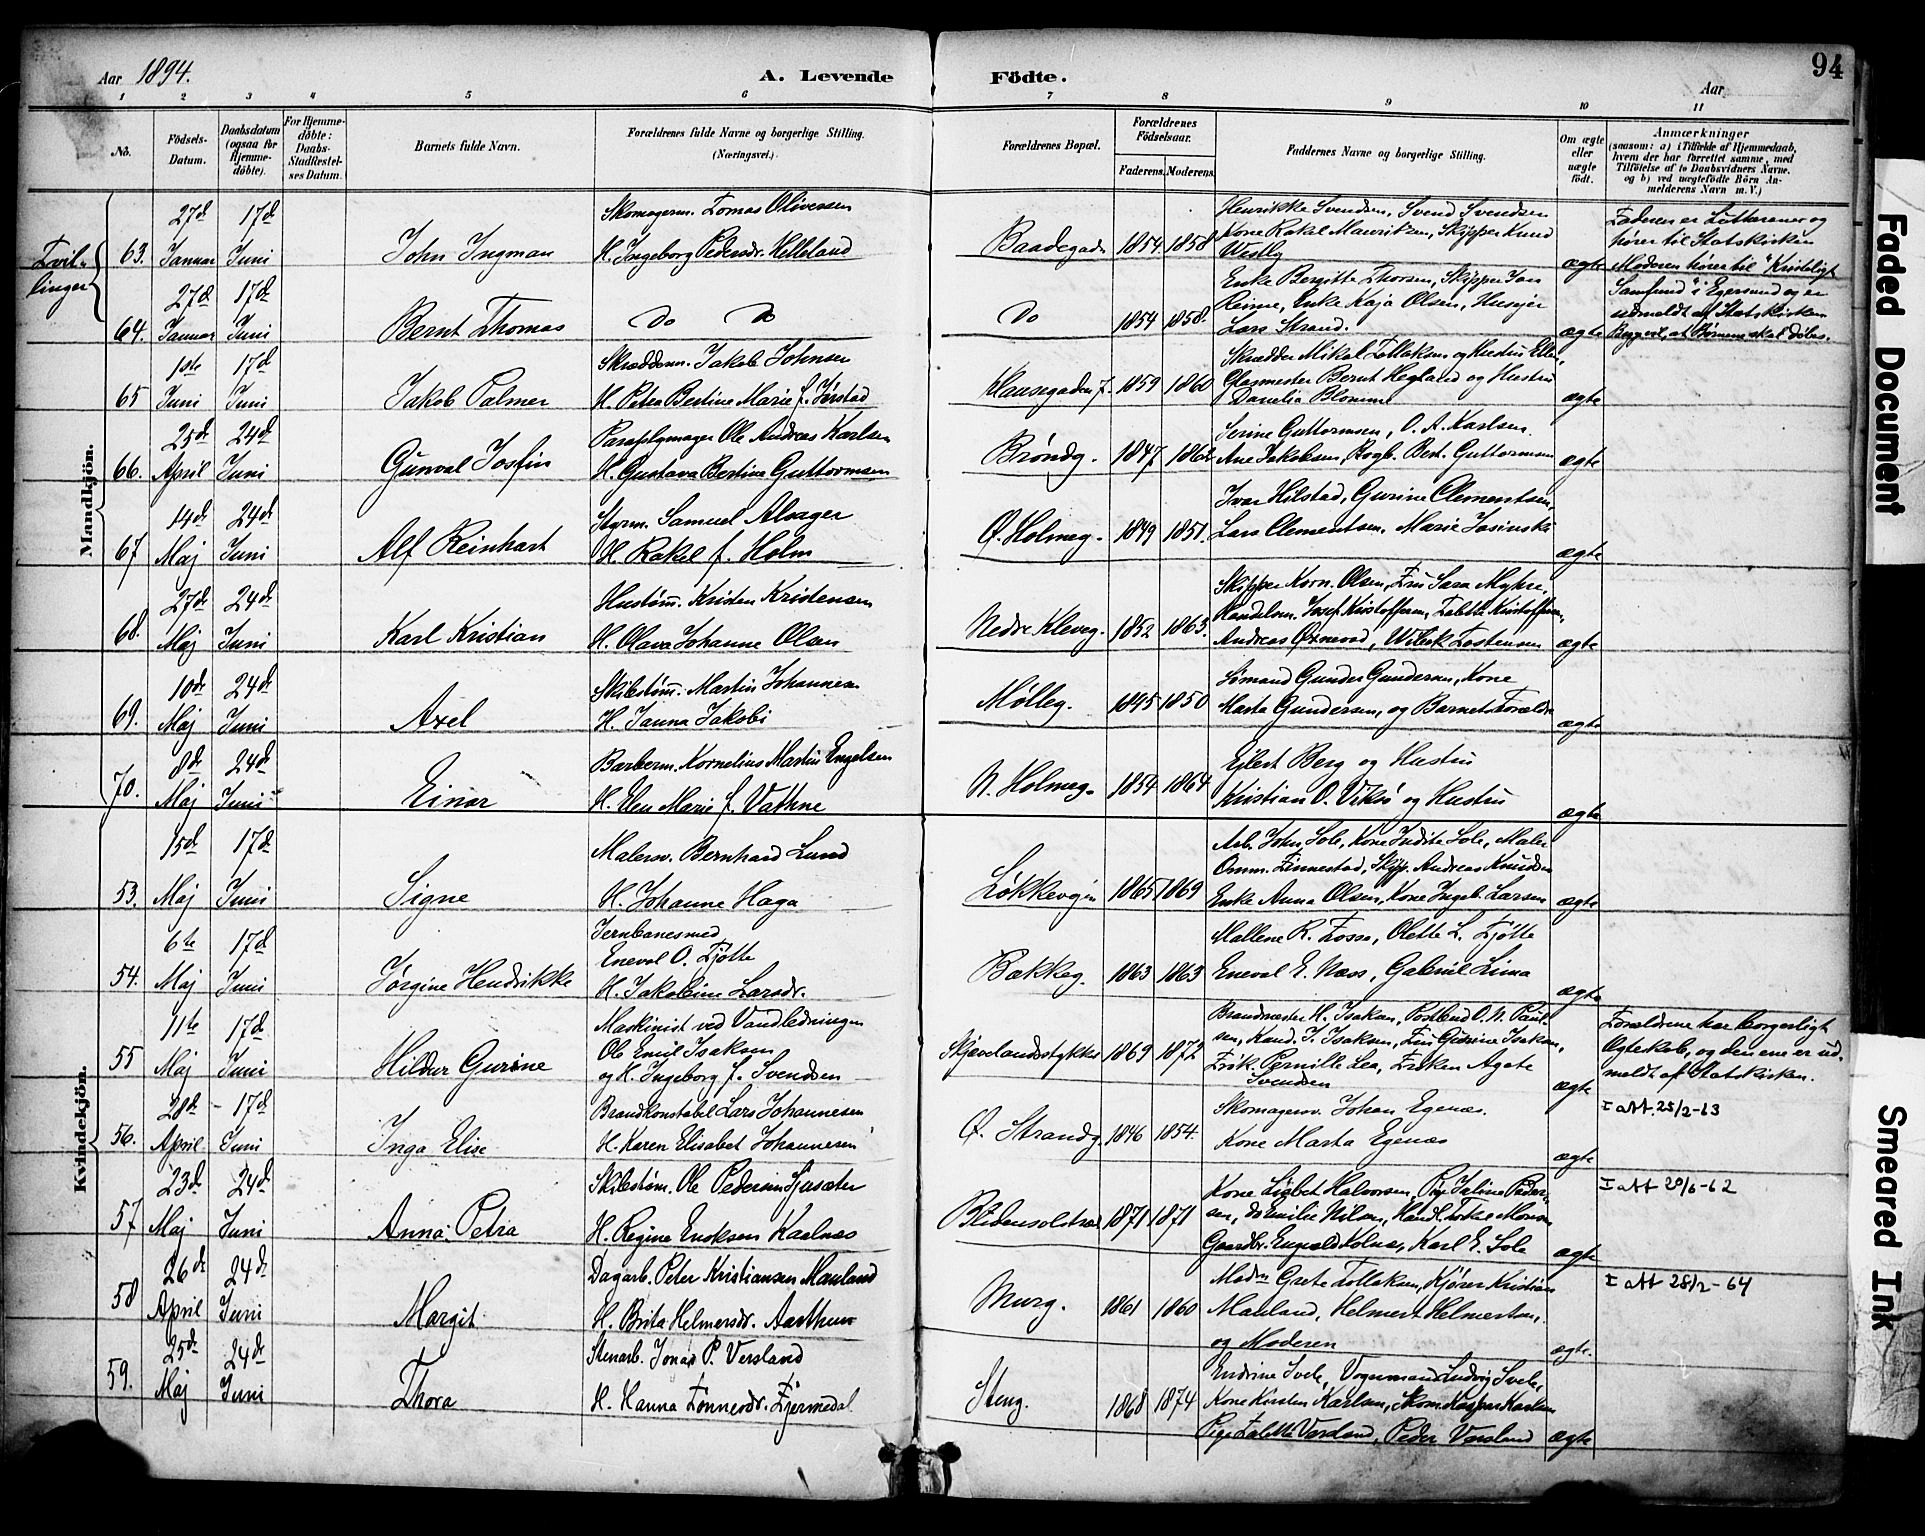 Aar 1894.
A. Levende Födte.
94
Aar
1 2 3 4 5 6 7 8 9 10 11
No.
Födsels-Datum.
Daabsdatum (ogsaa for Hjemme-döbte).
For Hjemme-döbte: Daabs-Stadfæstel-ses Datum.
Barnets fulde Navn.
Forældrenes fulde Navne og borgerlige Stilling. (Næringsvei.)
Forældrenes Bopæl.
Forældrenes Födselsaar.
Faderens. Moderens.
Faddernes Navne og borgerlige Stilling.
Om ægte eller uægte födt.
Anmærkninger
(saasom: a) i Tilfælde af Hjemmedaab, hvem der har forrettet samme, med Tilföielse af to Daabsvidners Navne. og b) ved uægtefödte Börn An-melderens Navn m. V.)
Mandkjön.
Tvil-
linger
63. 27d Januar 17d Juni
John Ingman
Skomagerm. Tomas Oliversen
H. Ingeborg Pedersdr. Helleland
Baadegade 1854 1858
Henrikke Svendsen, Svend Svendsen
Kone Rakel Mauritzen, Skipper Knud
Westly
ægte
Faderen er Lutheraner og
hører til Statskirken
Moderen hører til "Kristeligt
Samfund" i Egersund og er
udmeldt af Statskirken
Begge vil, at Børnene skal døbes.
64. 27d Januar 17d Juni
Bernt Thomas
Do Do
Do 1854 1858.
Enke Bergitte Thorsen, Skipper Jan
Reime, Enke Kaja Olsen, Husejer
Lars Strand.
ægte
65 1ste Juni 17d Juni
Jakob Palmer
Skrædderm. Jakob Johnsen
H. Petra Bertine Marie f. Jørstad
Hausegaden 7. 1859 1860
Skrædder Mikal Tollaksen og Hustru Ellen,
Glasmester Bernt Hegland og Hustru
Danelia Blomme
ægte
66. 25d April 24d Juni
Gunval Josfin
Paraplymager Ole Andreas Karlsen
H. Gustava Bertine Guttormsen
Brøndg. 1847 1862
Serine Guttormsen, O. A. Karlsen
Ane Jakobsen, Bogb. Bert. Guttormsen
ægte
67 14d Maj 24d Juni
Alf Reinhart
Styrm. Samuel Alsager
H. Rakel f. Holm
Ø. Holmeg. 1849 1851.
Ivar Hilstad, Gurine Clementsen,
Lars Clementsen. Marie Josinski
ægte
68. 27d Maj 24d Juni
Karl Kristian
Hustøm. Kristen Kristensen
H. Olava Johanne Olsen
Nedre Kleveg. 1852 1863.
Skipper Korn. Olsen, Fru Sara Myhre,
Handelsm. Josef Kristoffersen, Talette Kristoffersen,
Andreas Oxnevad, Wibek Tostensen
ægte
69. 10de Maj 24d Juni
Axel
Skibstøm. Martin Johannesen
H. Janna Jakobi
Mølleg. 1845 1850
Sømand Gunder Gundersen, Kone
Marta Gundersen, og Barnets Forældre
ægte
70. 8d Maj 24d Juni
Einar
Barberm. Kornelius Martin Engelsen
H. Elen Marie f. Vathne
N. Holmeg. 1854 1864
Eilert Berg og Hustru
Kristian O. Viksø og Hustru
ægte
Kvindekjön.
53. 15d Maj 17d Juni
Signe
Malersv. Bernhard Lund
H. Johanne Haga
Løkkevejen 1865 1869
Arb. John Sole, Kone Indite Sole, Maler
Omm. Finnestad, Skipp. Andreas Knudsen
Enke Anna Olsen, Kone Ingeb. Larsen
ægte
54. 6te Maj 17d Juni
Jørgine Hendrikke
Jernbanesmed
Eneval O. Fjøtte
H. Jakobine Larsdr.
Bakkeg. 1863 1863
Mallene R. Fosse, Olette L. Fjøtte
Eneval E. Næss, Gabriel Lima
ægte
55 11te Maj 17d Juni
Hildur Gurine
Maskinist ved Vandledningen
Ole Emil Isaksen
og H. Ingeborg f. Svendsen
Skjævelandsstykket 1869 1872
Brandmester H. Isaksen, Postbud O. N. Paul-
sen, Kand. I. Isaksen, Fru Gurine Isaksen,
Frøk. Pernille Lea, Frøken Agate
Svendsen
ægte
Forældrene har borgerligt
Ægteskab, og den ene er ud-
meldt af Statskirken.
56. 28d April 17d Juni
Inga Elise
Brandkonstabel Lars Johannesen
H. Karen Elisabet Johannesen
Ø. Strandg 1846 1854.
Skomagersv. Johan Egenæs.
Kone Marta Egenæs
ægte
1 att. 25/2-63
57 23d Maj 24d Juni
Anna Petra
Skibstøm. Ole Pedersen Sjusæter
H. Regine Enoksen Kaalnæs
Blidensolstræd 1871 1871
Kone Lisbet Halvorsen, Pige Taline Peder-
sen, do Emilie Nilsen, Handl. Torkel Monsen
Gaardbr. Engvald Kolnæs, Karl E. Sole
ægte
1 att 20/6-62
58 26de April 24de Juni
Margit
Dagarb. Peter Kristiansen Mauland
H. Brita Helmersdr. Aarthun
Murg. 1861 1860
Madm Grete Tollaksen, Kjører Kristian
Mauland, Helmert Helmertsen,
og Moderen
ægte.
1 att 28/2-64
59. 25d Maj 24de Juni
Thora
Stenarb. Jonas P. Versland
H. Hanna Tønnesdr. Fjermedal.
Steng. 1868 1874
Endrine Svele, Vognmand Ludvig Svele,
Kone Kirsten Karlsen, Skom. Kasper Karlsen
Pige Talette Versland, Peder Versland
ægte
Faded Document
Smeared Ink